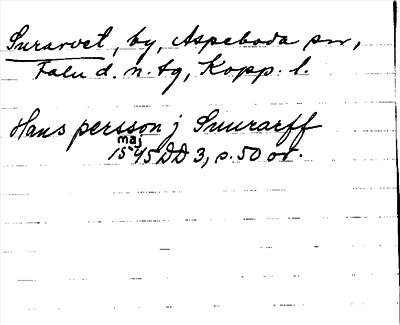 Surarvet, by, Aspeboda sn,
Falu d. n. tg, Kopp. l.
Hans persson j Suurarff
maj
1545 DD 3, s. 50 or.